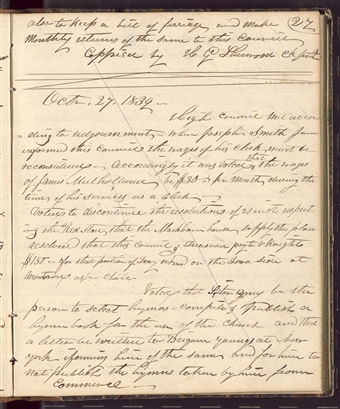 also to keep a bill of ferriage and make (27
Monthly returns of the same to this Council
Coppied by H G Sherwood Clk
Octr. 27. 1839 —
High Council met accor
ding to adjournment — When Joseph Smith Jun
informed this Council the wages of his clerk must be
reconsidered — Accordingly it was voted that the wages
of James Mulholland be $30 — pr Month, during the
time of his services as a clerk —
Voted to discontinue the resolutions of 21st inst respect
ing the Ned Store, that the Mackham house supply the place
resolved that this Council & Treasurer pay to Knights
$150 — for that portion of ferry owned on the Iowa side at
Montrose
Voted that Sister Emy be the
person to select hymns — compile & publish a
hymn book for the use of the Church and that
a letter be written to Brigum young at New
york informing him of the same and for him to
not publish the hymns taken by him from
Commerce —